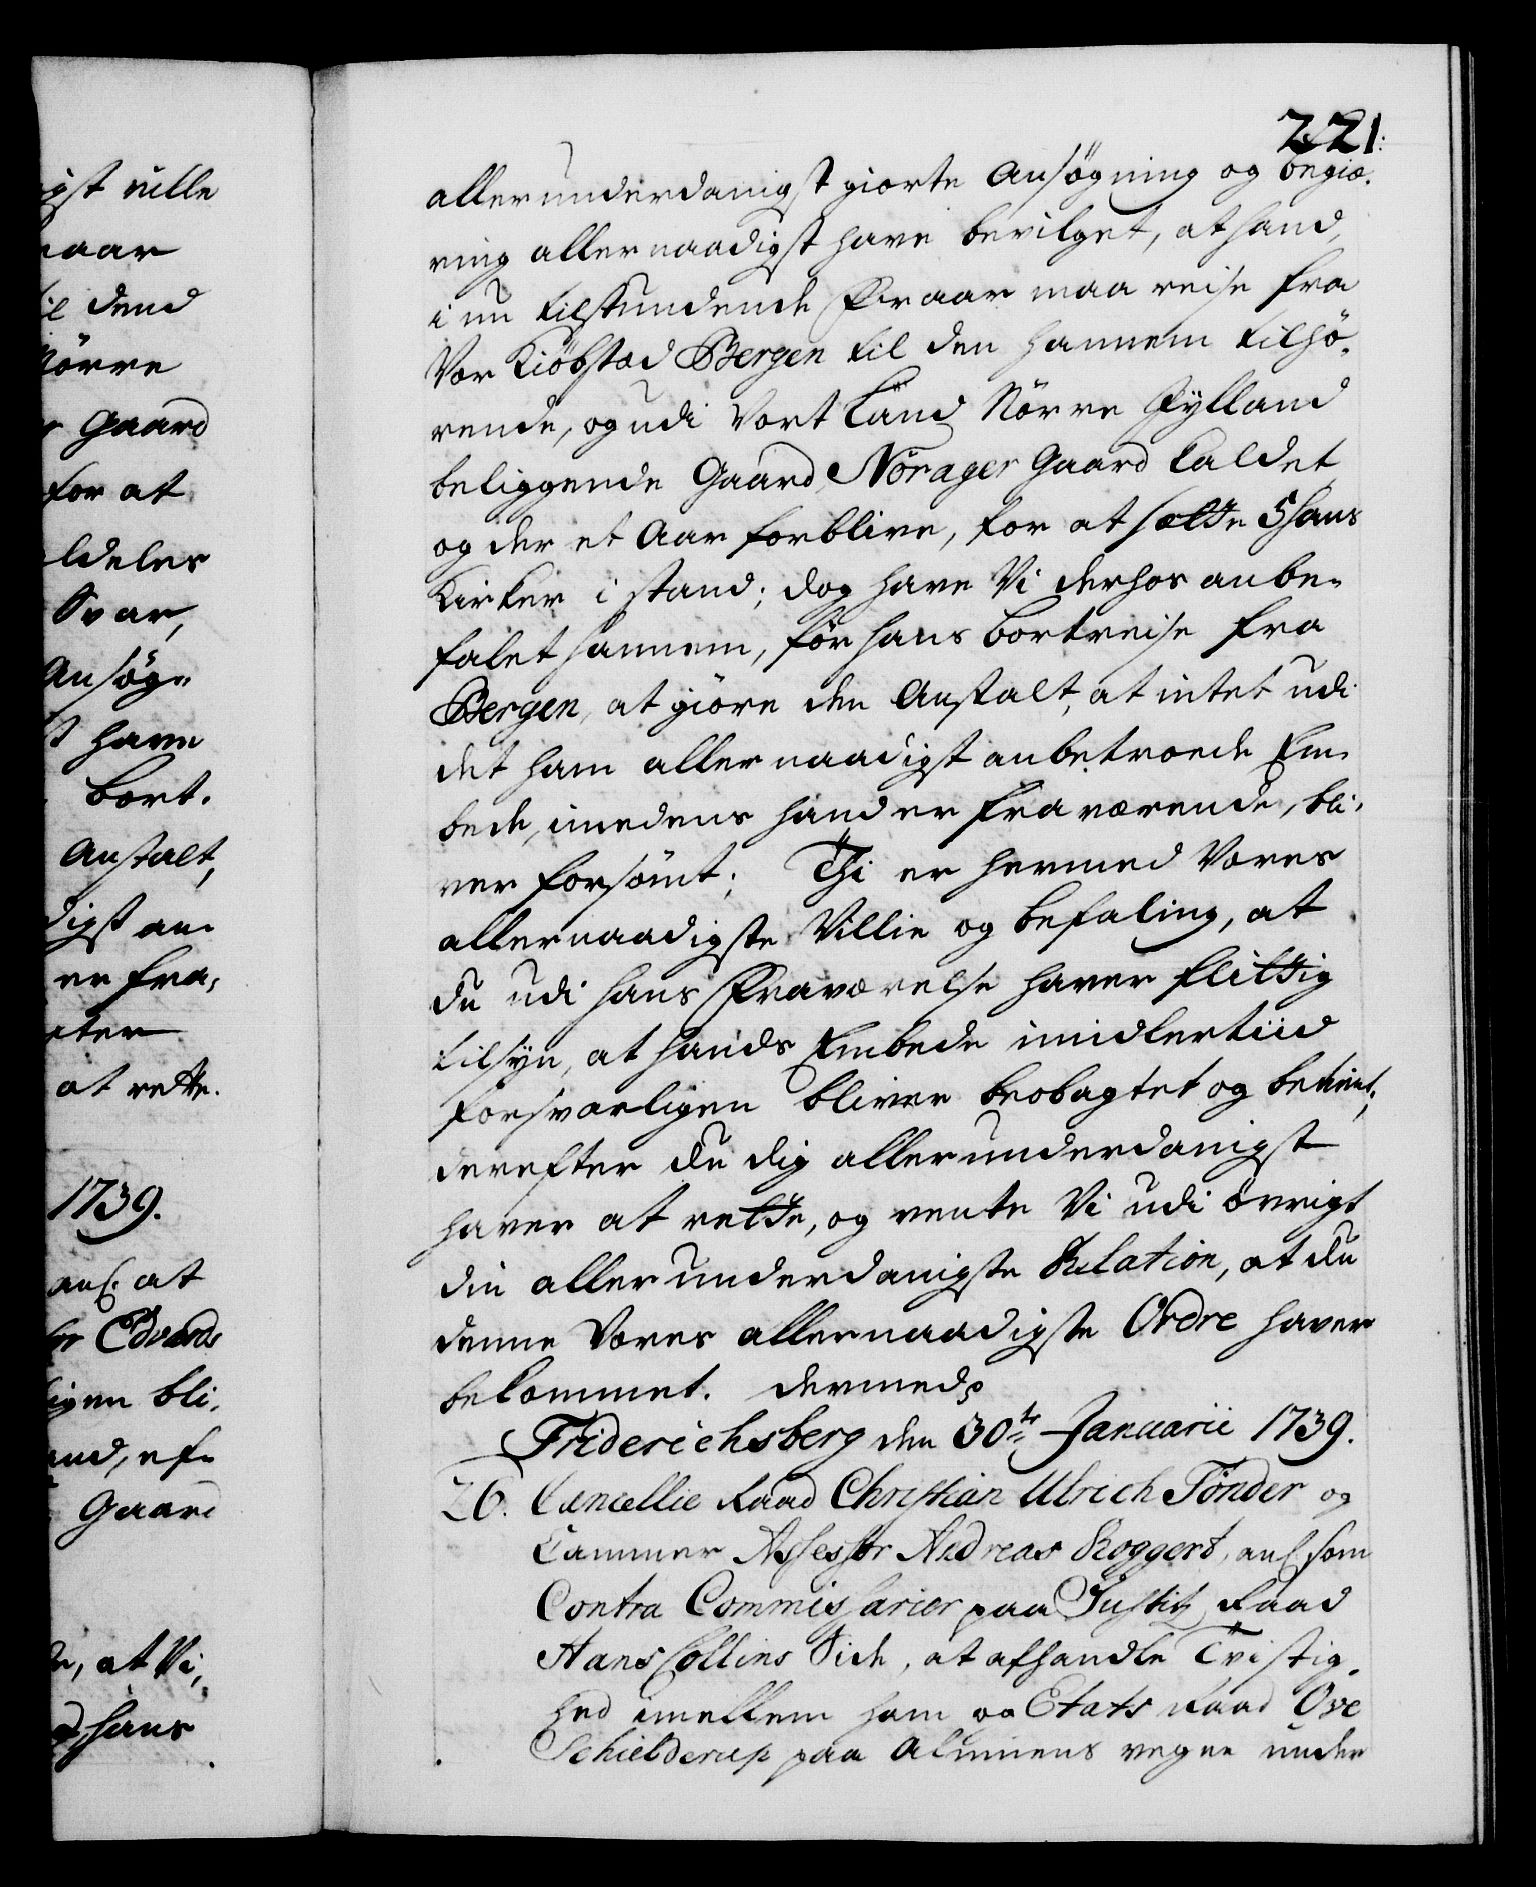 221.
allerunderdanigst giorte Ansøgning og begiæ-
ring allernaadigst have bevilget, at hand,
i nu tilstundende Foraar maa reise fra
Vor Kiöbstad Bergen til den hannem tilhö-
rende, og udi Vort Land Nörre Jylland
beliggende Gaard, Nörager Gaard kaldet
og der et Aar forblive, for at sætte 5 hans
Kirker i stand; dog have Vi derhos anbe-
falet hannem, för hans bortreise fra
Bergen, at giöre den Anstalt, at intet udi
det ham allernaadigst anbetroede Em-
bede, imedens hand er fraværende, bli-
ver forsömt; Thi er hermed Vores
allernaadigste Villie og befaling, at
du udi hans Fraværelse haver flittig
tilsyn, at hands Embede imidlertiid
forsvarligen bliver beobagtet og betient;
derefter du dig allerunderdanigst
haver at rette, og vente Vi udi övrigt
din allerunderdanigste Relation, at du
denne Vores allernaadigste Ordre haver
bekommet. dermed
Friderichsberg den 30te Januarii 1739.
26. Cancellie Raad Christian Ulrich Tönder og
Cammer Assessor Andreas Roggert, anl. som
Contra Commissarier paa Justitz Raad
Hans Collins Side, at afhandle Tvistig-
hed imellem ham og Etats Raad Ove
Schielderup paa Alminens vegne under
igst ville
aar
il dend
Nörre
r Gaard
for at
ldeles
Svar,
Ansög-
st have
bort-
Anstalt,
digst an-
er fra-
eter
at rette.
1739.
anl. at
Edvards
igen bli-
and, ef-
Gaard
, at Vi,
hans